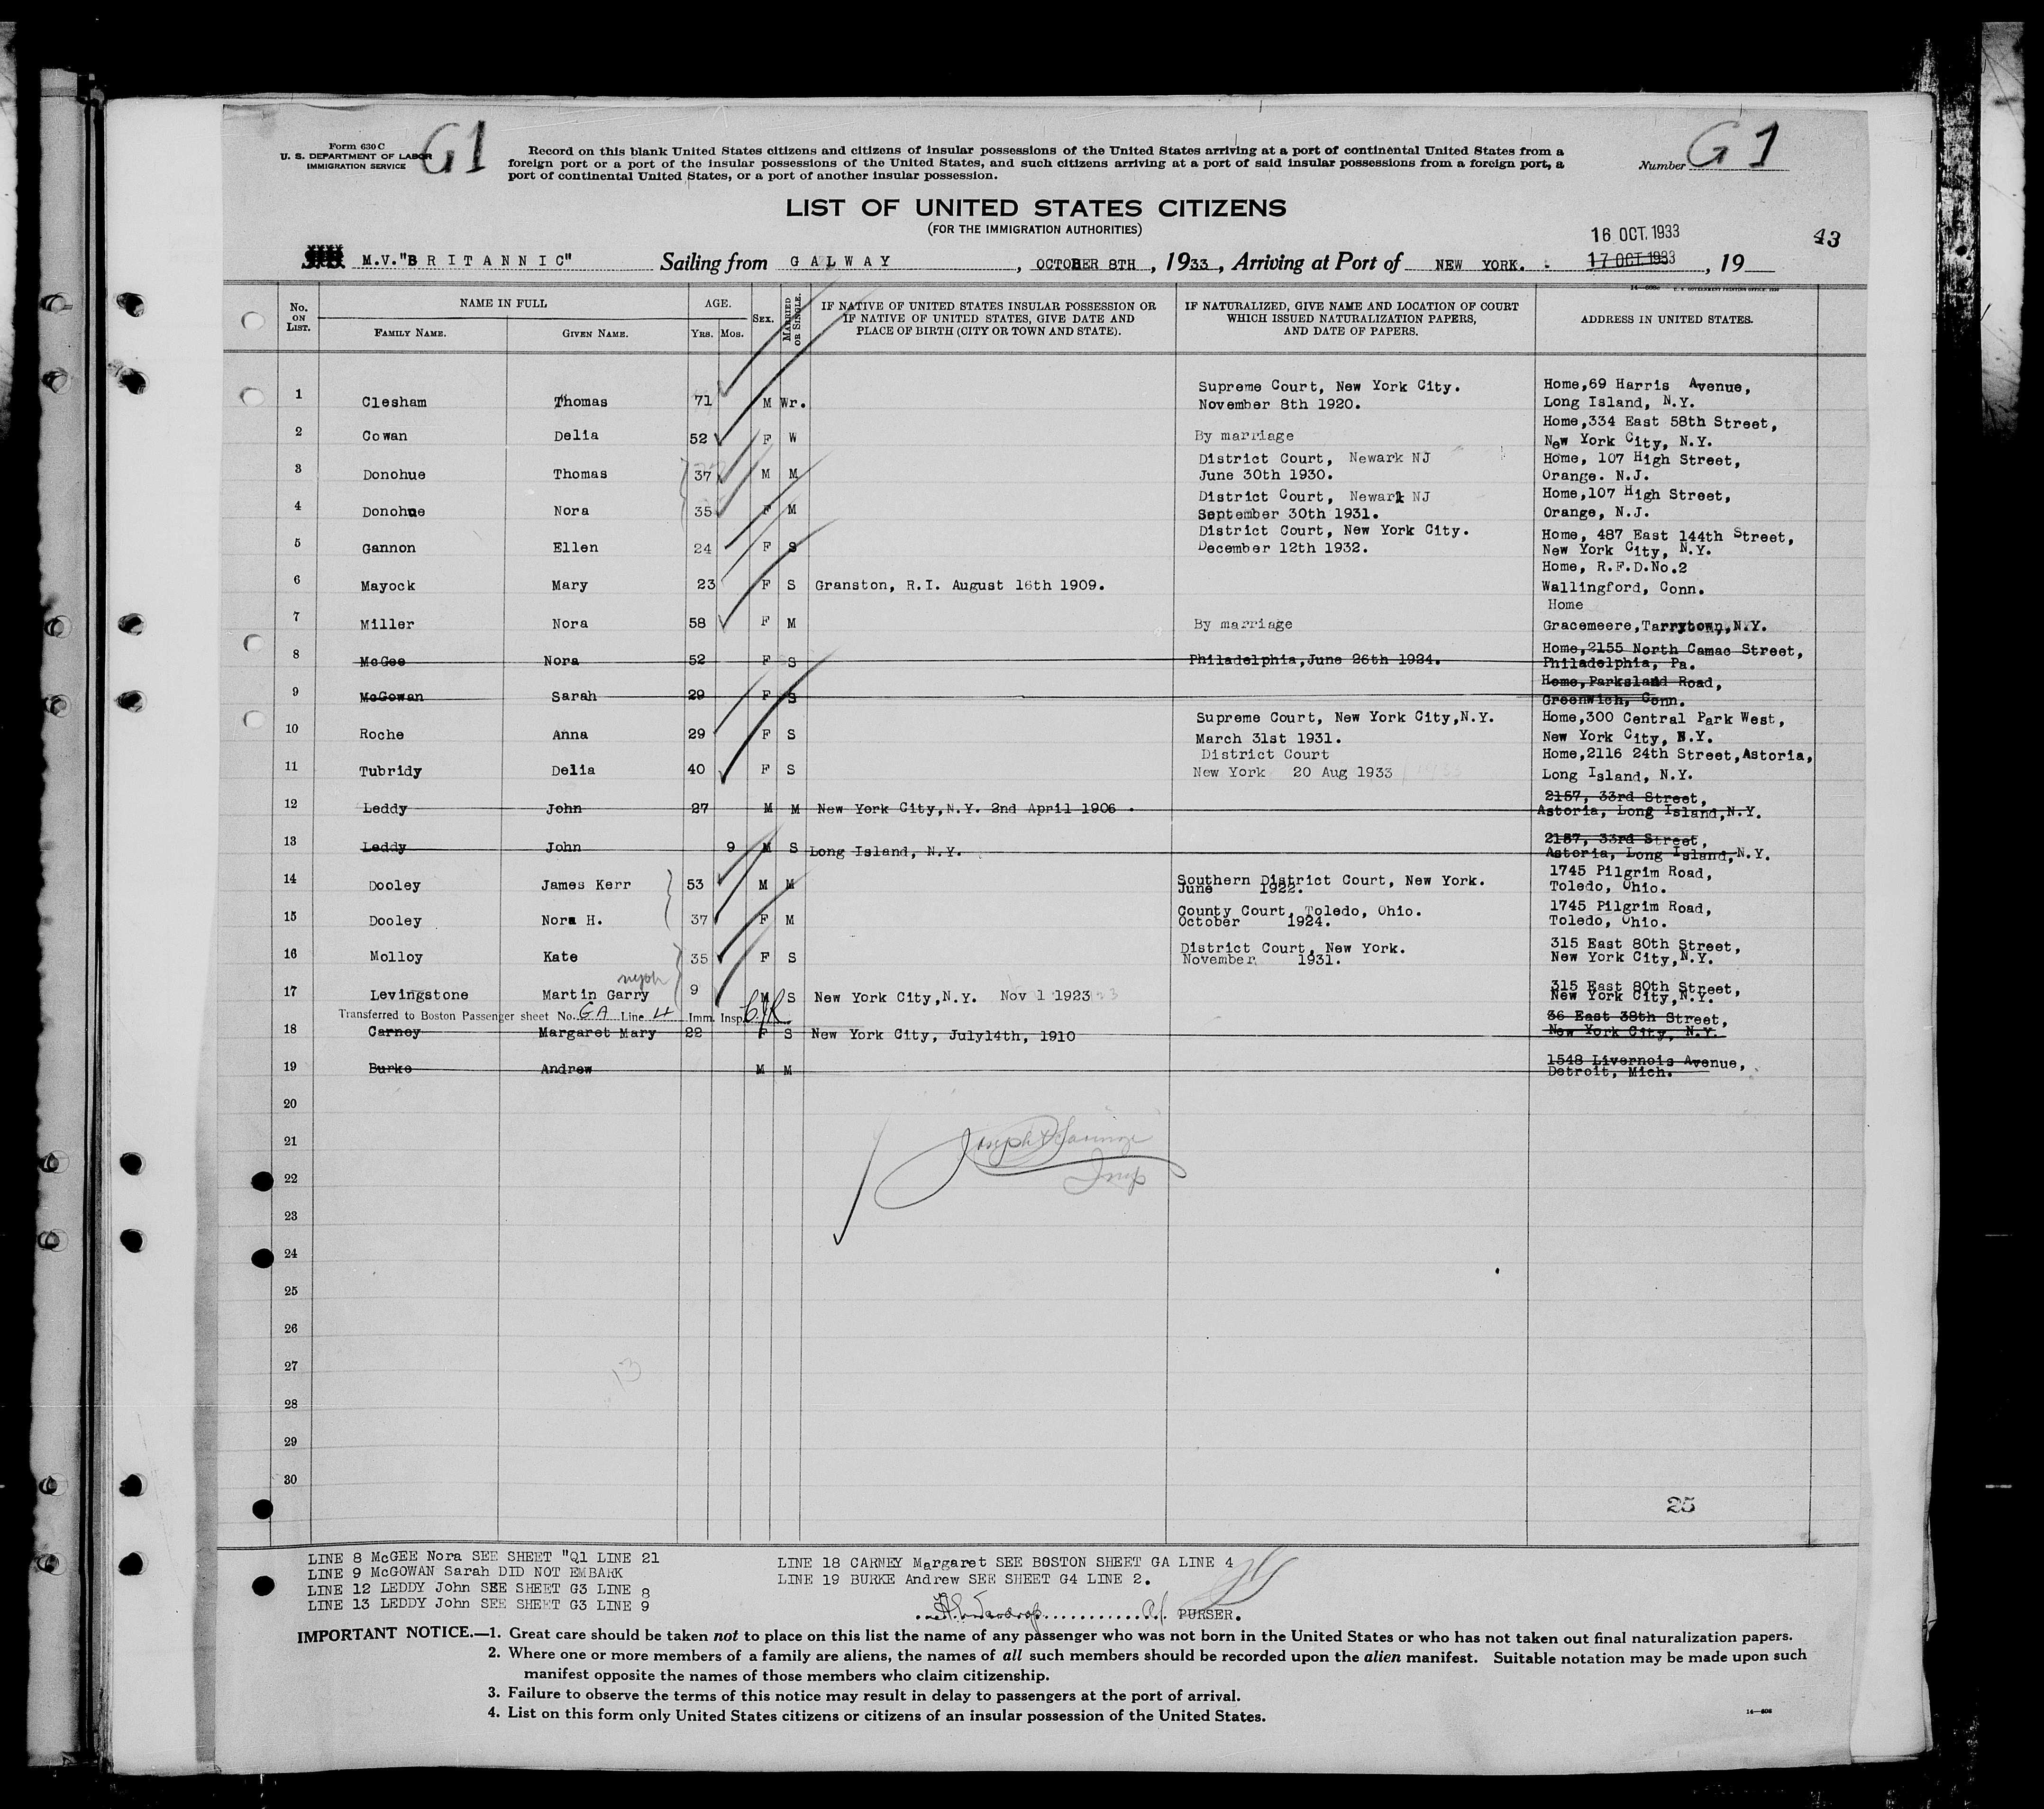 Form 630 C
U. S. DEPARTMENT OF LABOR
IMMIGRATION SERVICE
G1
Record on this blank United States citizens and citizens of insular possessions of the United States arriving at a port of continental United States from a
foreign port or a port of the insular possessions of the United States, and such citizens arriving at a port of said insular possessions from a foreign port, a
port of continental United States, or a port of another insular possession.
Number G1
LIST OF UNITED STATES CITIZENS
(FOR THE IMMIGRATION AUTHORITIES)
16 OCT. 1933
43
M.V."BRITANNIC" Sailing from GALWAY, OCTOBER 8TH, 1933, Arriving at Port of NEW YORK. 17 OCT. 1933, 19
No. ON LIST. NAME IN FULL FAMILY NAME. GIVEN NAME. AGE. YRS. MOS. SEX. MARRIED OR SINGLE. IF NATIVE OF UNITED STATES INSULAR POSSESSION OR IF NATIVE OF UNITED STATES, GIVE DATE AND PLACE OF BIRTH (CITY OR TOWN AND STATE). IF NATURALIZED, GIVE NAME AND LOCATION OF COURT WHICH ISSUED NATURALIZATION PAPERS, AND DATE OF PAPERS. ADDRESS IN UNITED STATES.
1 Clesham Thomas 71 M Wr. Supreme Court, New York City. November 8th 1920. Home,69 Harris Avenue, Long Island, N.Y.
2 Cowan Delia 52 F W By marriage Home,334 East 58th Street, New York City, N.Y.
3 Donohue Thomas 37 M M District Court, Newark NJ June 30th 1930. Home, 107 High Street, Orange. N.J.
4 Donohue Nora 35 F M District Court, Newark NJ September 30th 1931. Home,107 High Street, Orange, N.J.
5 Gannon Ellen 24 F S District Court, New York City. December 12th 1932. Home, 487 East 144th Street, New York City, N.Y.
6 Mayock Mary 23 F S Granston, R.I. August 16th 1909. Home, R.F.D.No.2 Wallingford, Conn.
7 Miller Nora 58 F M By marriage Home Gracemeere,Tarrytown,N.Y.
8 McGee Nora 52 F S Philadelphia,June 26th 1924. Home,2155 North Camac Street, Philadelphia, Pa.
9 McGowan Sarah 29 F S Home,Parksland Road, Greenwich, Conn.
10 Roche Anna 29 F S Supreme Court, New York City,N.Y. March 31st 1931. Home,300 Central Park West, New York City, N.Y.
11 Tubridy Delia 40 F S District Court New York 20 Aug 1933 Home,2116 24th Street,Astoria, Long Island, N.Y.
12 Leddy John 27 M M New York City,N.Y. 2nd April 1906 2157, 33rd Street, Astoria, Long Island,N.Y.
13 Leddy John 9 M S Long Island, N.Y. 2157, 33rd Street, Astoria, Long Island,N.Y.
14 Dooley James Kerr 53 M M Southern District Court, New York. June 1922. 1745 Pilgrim Road, Toledo, Ohio.
15 Dooley Nora H. 37 F M County Court, Toledo, Ohio. October 1924. 1745 Pilgrim Road, Toledo, Ohio.
16 Molloy Kate 35 F S District Court, New York. November 1931. 315 East 80th Street, New York City,N.Y.
17 Levingstone Martin Garry 9 M S New York City,N.Y. Nov 1 1923 315 East 80th Street, New York City,N.Y.
Transferred to Boston Passenger sheet No. GA Line 4 Imm. Insp.
18 Carney Margaret Mary 22 F S New York City, July14th, 1910 36 East 38th Street, New York City, N.Y.
19 Burke Andrew M M 1548 Livernois Avenue, Detroit, Mich.
20
21
22
Insp
23
24
25
26
27
13
28
29
30
25
LINE 8 McGEE Nora SEE SHEET "Q1 LINE 21
LINE 9 McGOWAN Sarah DID NOT EMBARK
LINE 12 LEDDY John SEE SHEET G3 LINE 8
LINE 13 LEDDY John SEE SHEET G3 LINE 9
LINE 18 CARNEY Margaret SEE BOSTON SHEET GA LINE 4
LINE 19 BURKE Andrew SEE SHEET G4 LINE 2.
PURSER.
IMPORTANT NOTICE.—1. Great care should be taken not to place on this list the name of any passenger who was not born in the United States or who has not taken out final naturalization papers.
2. Where one or more members of a family are aliens, the names of all such members should be recorded upon the alien manifest. Suitable notation may be made upon such
manifest opposite the names of those members who claim citizenship.
3. Failure to observe the terms of this notice may result in delay to passengers at the port of arrival.
4. List on this form only United States citizens or citizens of an insular possession of the United States.